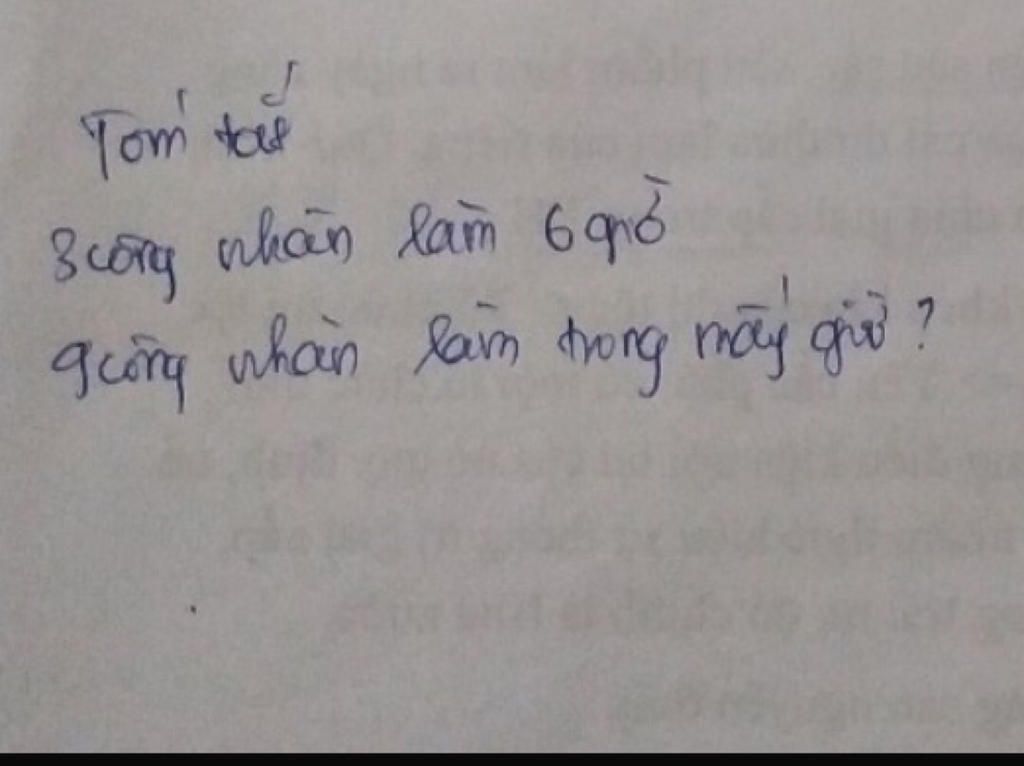 Tóm tắt
3 công nhân làm 6 giờ
9 công nhân làm trong mấy giờ?